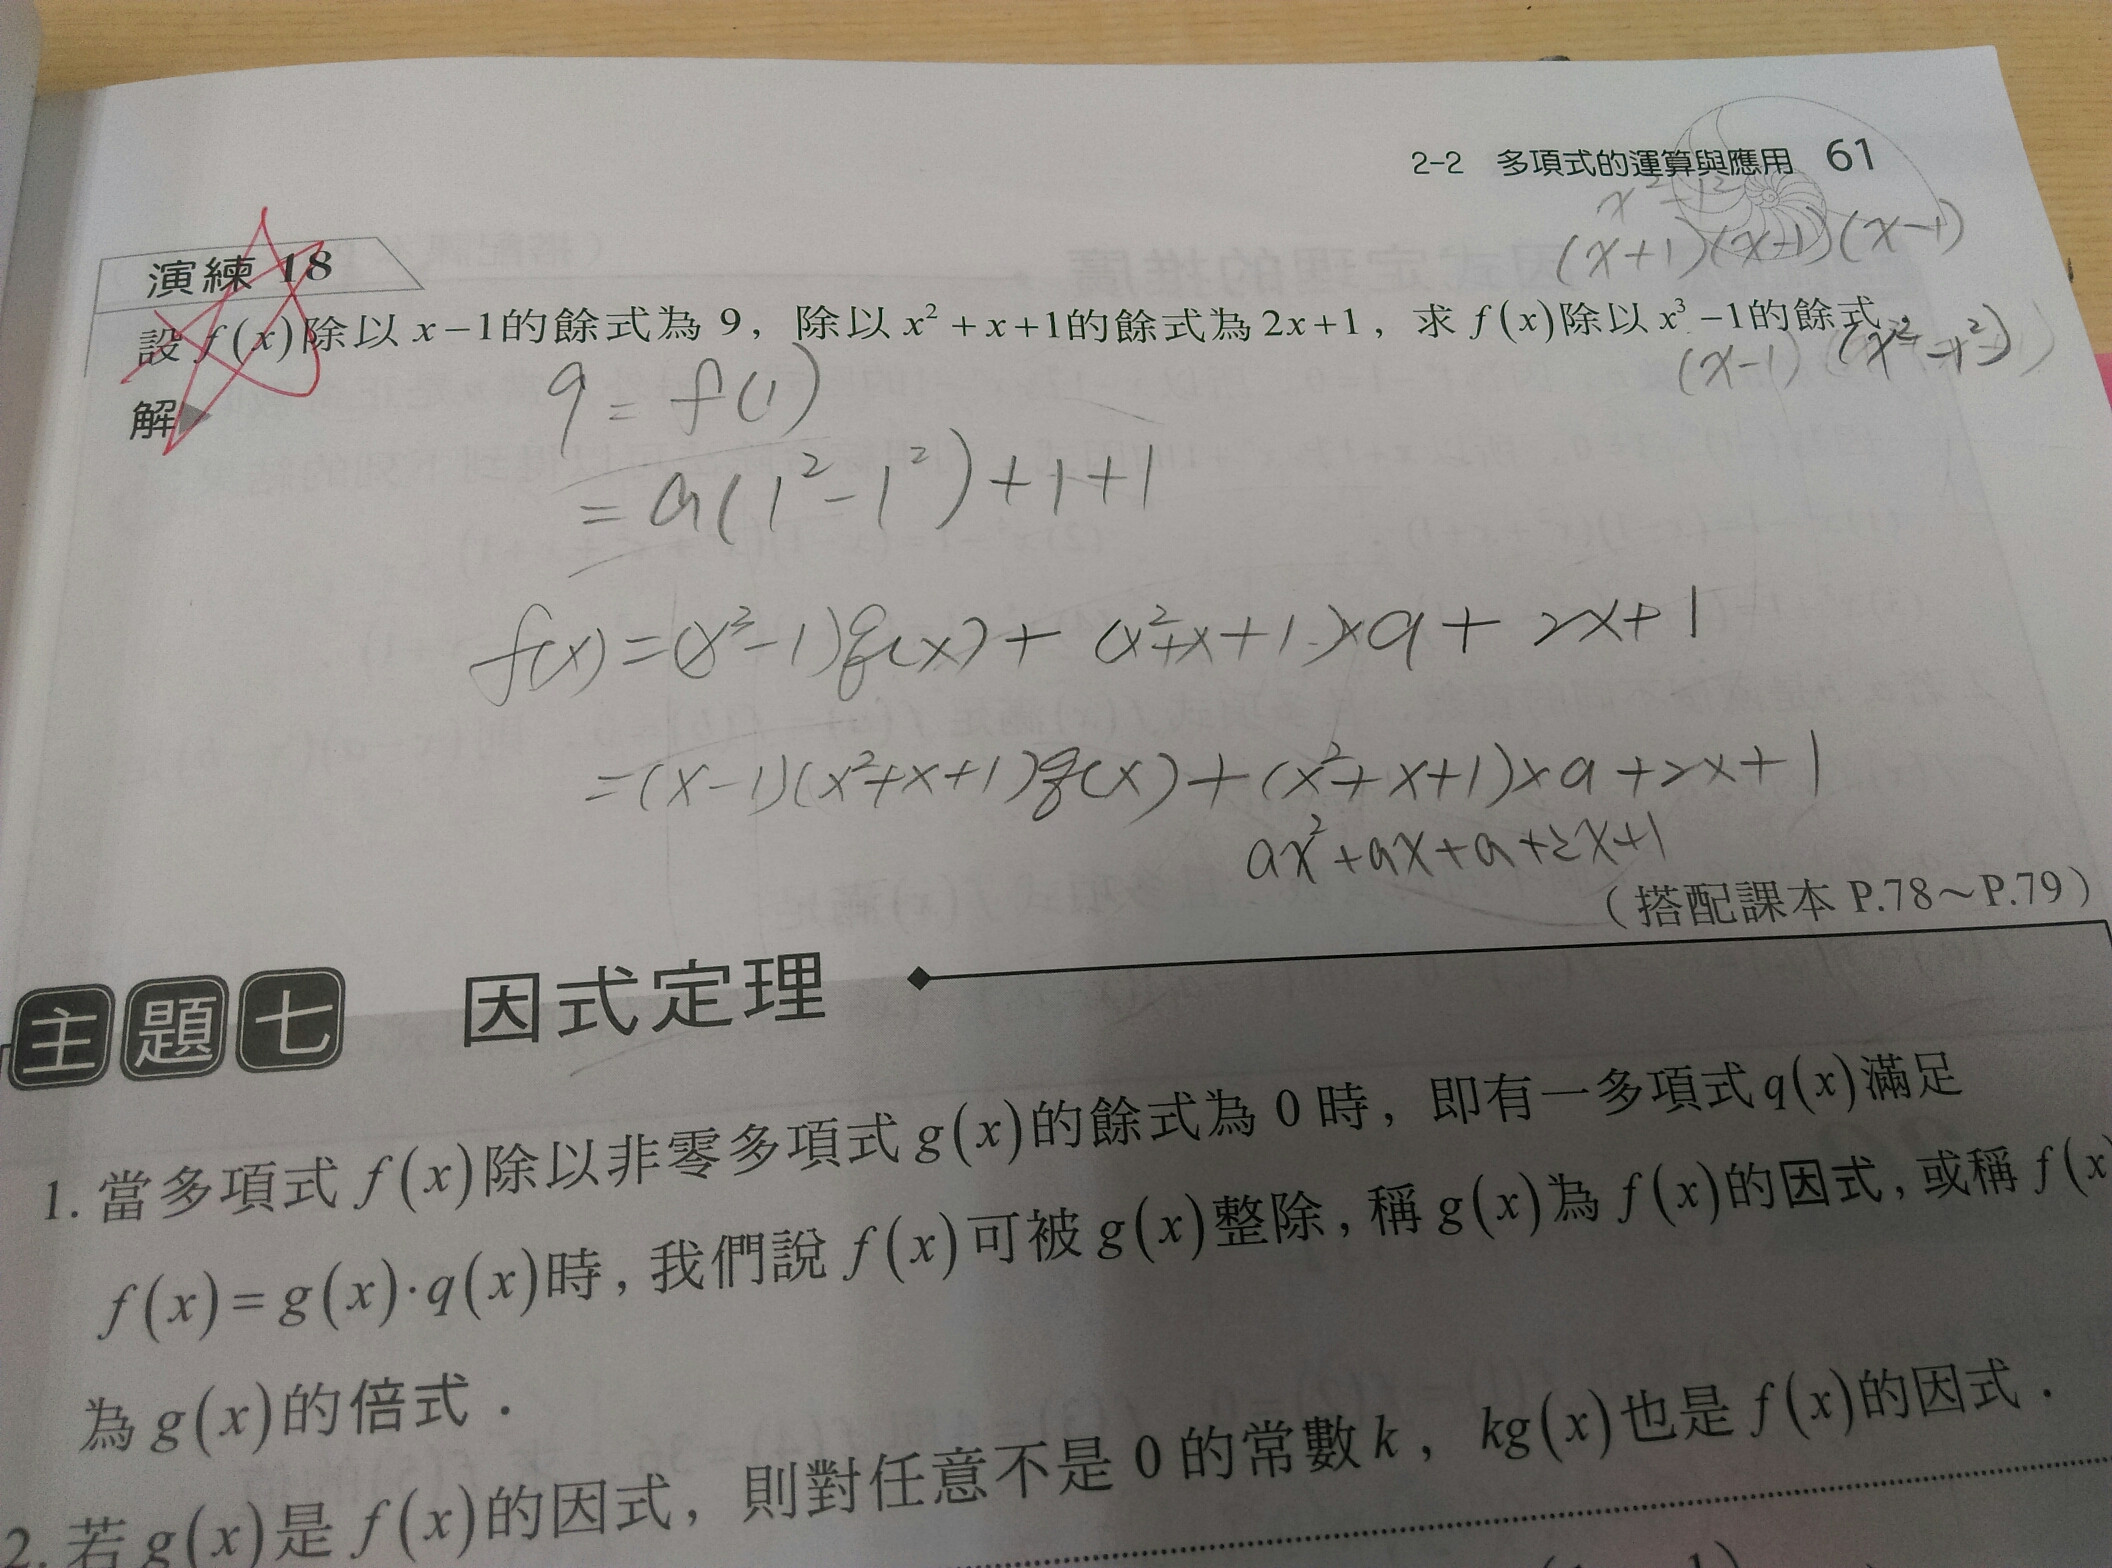 2-2 多項式的運算與應用 61
x²-1²
(x+1)(x-1)(x-1)
演練 18
設 f(x)除以 x-1的餘式為 9，除以 x²+x+1的餘式為 2x+1，求 f(x)除以 x³-1的餘式．
(x-1)(x²-x²)
解
9=f(1)
=a(1²-1²)+1+1
f(x)=(x³-1)q(x)+(x²+x+1)×a+2x+1
=(x-1)(x²+x+1)q(x)+(x²+x+1)×a+2x+1
ax²+ax+a+2x+1
（搭配課本 P.78～P.79）
主題七 因式定理
1. 當多項式 f(x)除以非零多項式 g(x)的餘式為 0 時，即有一多項式 q(x)滿足
f(x)=g(x)·q(x)時，我們說 f(x)可被 g(x)整除，稱 g(x)為 f(x)的因式，或稱 f(x
為 g(x)的倍式．
2. 若 g(x)是 f(x)的因式，則對任意不是 0 的常數 k，kg(x)也是 f(x)的因式．